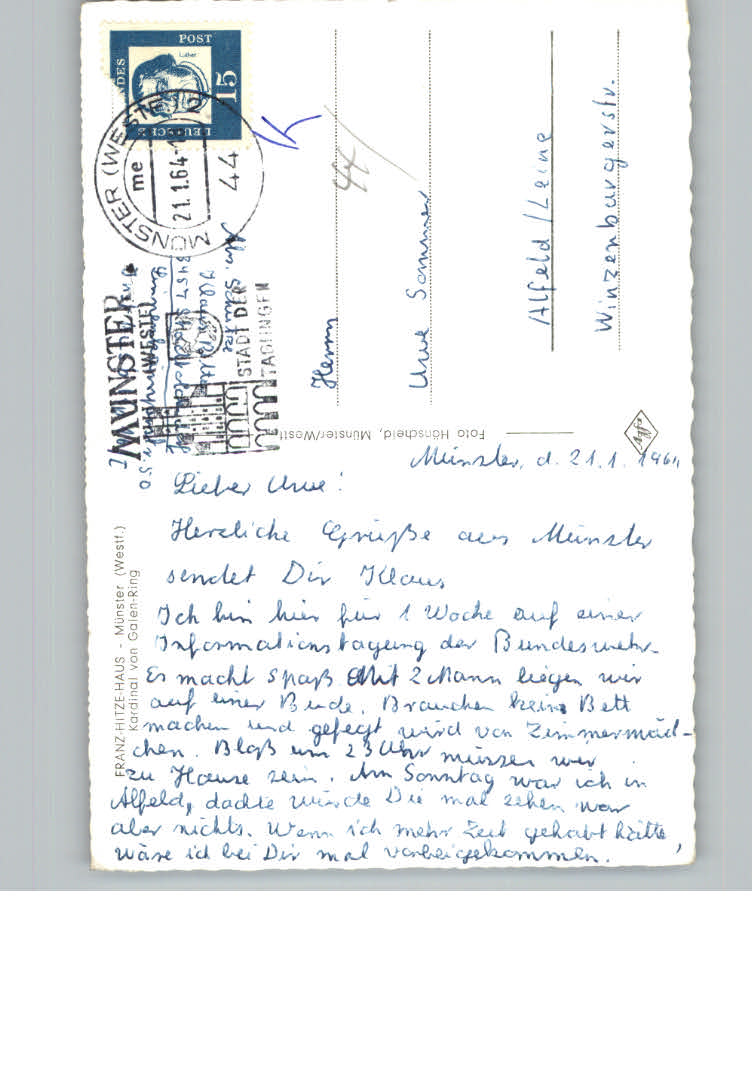 Münster, d. 21.1.1964
Lieber Uwe!
Herzliche Grüße aus Münster
sendet Dir Klaus
Ich bin hier für 1 Woche auf einer
Informationstagung der Bundeswehr.
Es macht Spaß Mit 2 Mann liegen wir
auf einer Bude. Brauchen kein Bett
machen und gefegt wird von Zimmermäd-
chen. Bloß um 23 Uhr müssen wir
zu Hause sein. Am Sonntag war ich in
Alfeld, dachte würde Die mal sehen war
aber nichts. Wenn ich mehr Zeit gehabt hätte,
wäre ich bei Dir mal vorbeigekommen.
FRANZ-HITZE-HAUS - Münster (Westf.)
Kardinal von Galen-Ring
Foto Hönscheid, Münster/Westf.
Herrn
Uwe Sommer
Alfeld/Leine
Winzenburgerstr.
44
POST
Luther
15
MÜNSTER (WESTF) 2
me
21.1.64
44
MÜNSTER
(WESTF)
STADT DER
TAGUNGEN
Klaus
3457
50